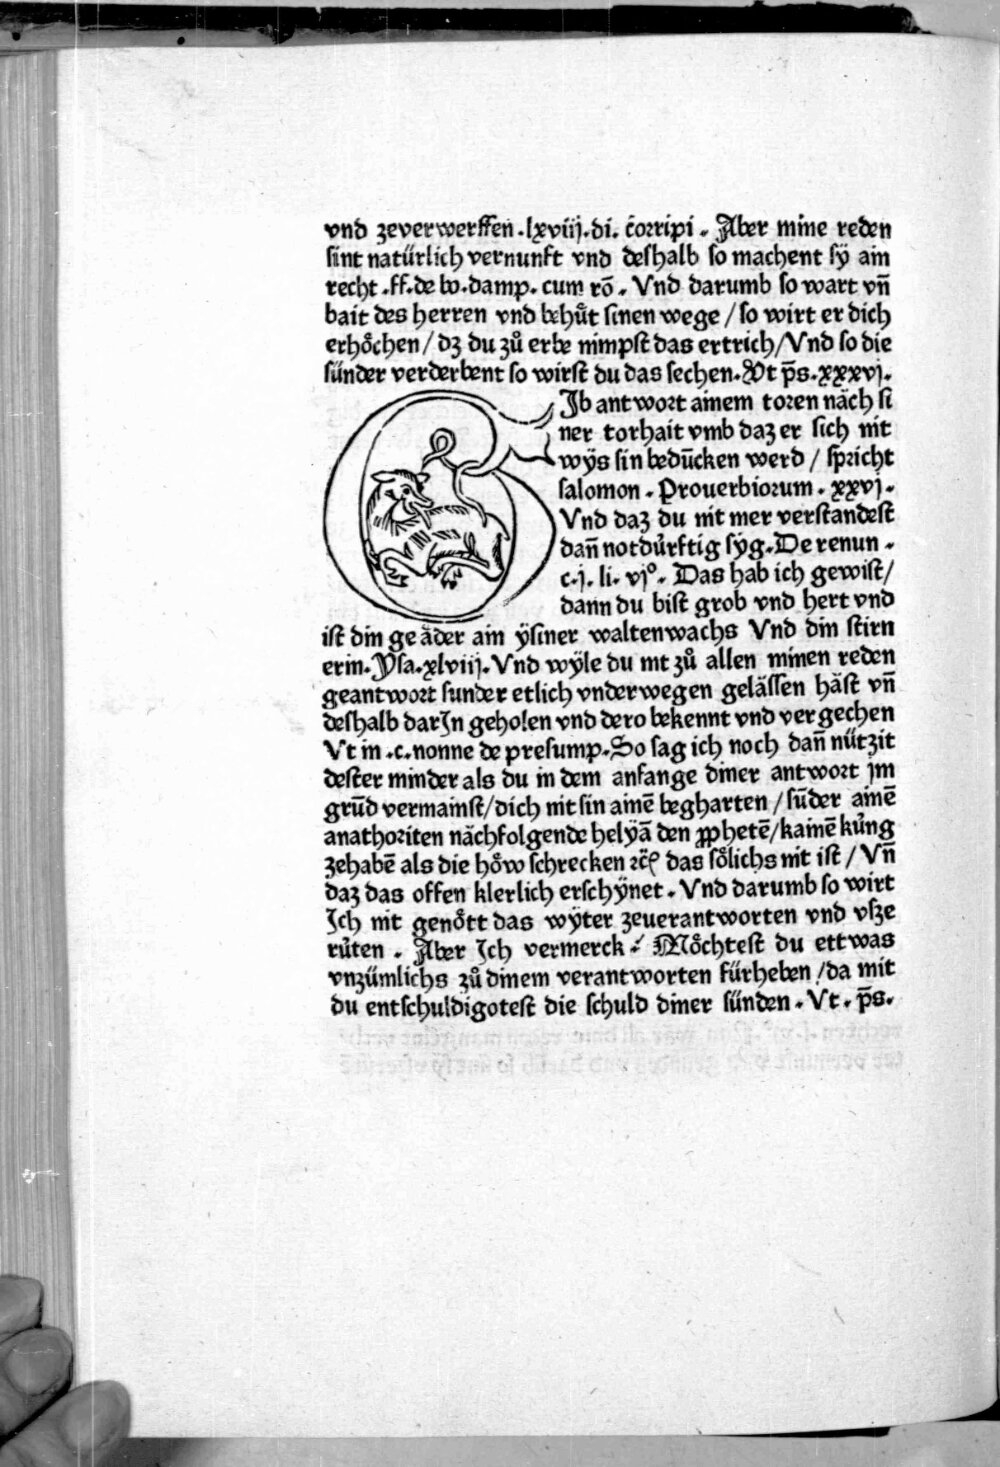 vnd zeverwerffen .lxviij.di. corripi . Aber mine reden
sint natürlich vernunft vnd deshalb so machent sÿ ain
recht .ff.de bo.damp. cum rō . Vnd darumb so wart vn̄
bait des herren vnd behuͤt sinen wege / so wirt er dich
erhoͤchen / dz du zuͦ erbe nimpst das ertrich / Vnd so die
sünder verderbent so wirst du das sechen. Vt p̄s.xxxvj.
GIb antwort ainem toren näch si
ner torhait vmb daz er sich nit
wÿs sin bedūcken werd / spricht
salomon . Prouerbiorum . xxvj.
Vnd daz du nit mer verstandest
dan̄ notduͤrftig sÿg. De renun .
c.j. li. vjº. Das hab ich gewist /
dann du bist grob vnd hert vnd
ist din geäder ain ÿsiner waltenwachs Vnd din stirn
erin. Ysa.xlviij. Vnd wÿle du nit zuͦ allen minen reden
geantwort sunder etlich vnderwegen gelässen häst vn̄
deshalb darJn geholen vnd dero bekennt vnd vergechen
Vt in .c. nonne de presump. So sag ich noch dan̄ nützit
dester minder als du in dem anfange diner antwort jm
grūd vermainst / dich nit sin ainē begharten / sūder ainē
anathoriten nächfolgende helÿā den ꝓphetē / kainē kuͤng
zehabē als die hoͤw schrecken ꝛc̄ das soͤlichs nit ist / Vn̄
daz das offen klerlich erschÿnet . Vnd darumb so wirt
Jch nit genoͤtt das wÿter zeuerantworten vnd vsze
ruͤten . Aber Jch vermerck : Moͤchtest du ettwas
vnzümlichs zuͦ dinem verantworten fürheben / da mit
du entschuldigotest die schuld diner sünden . Vt . p̄s.